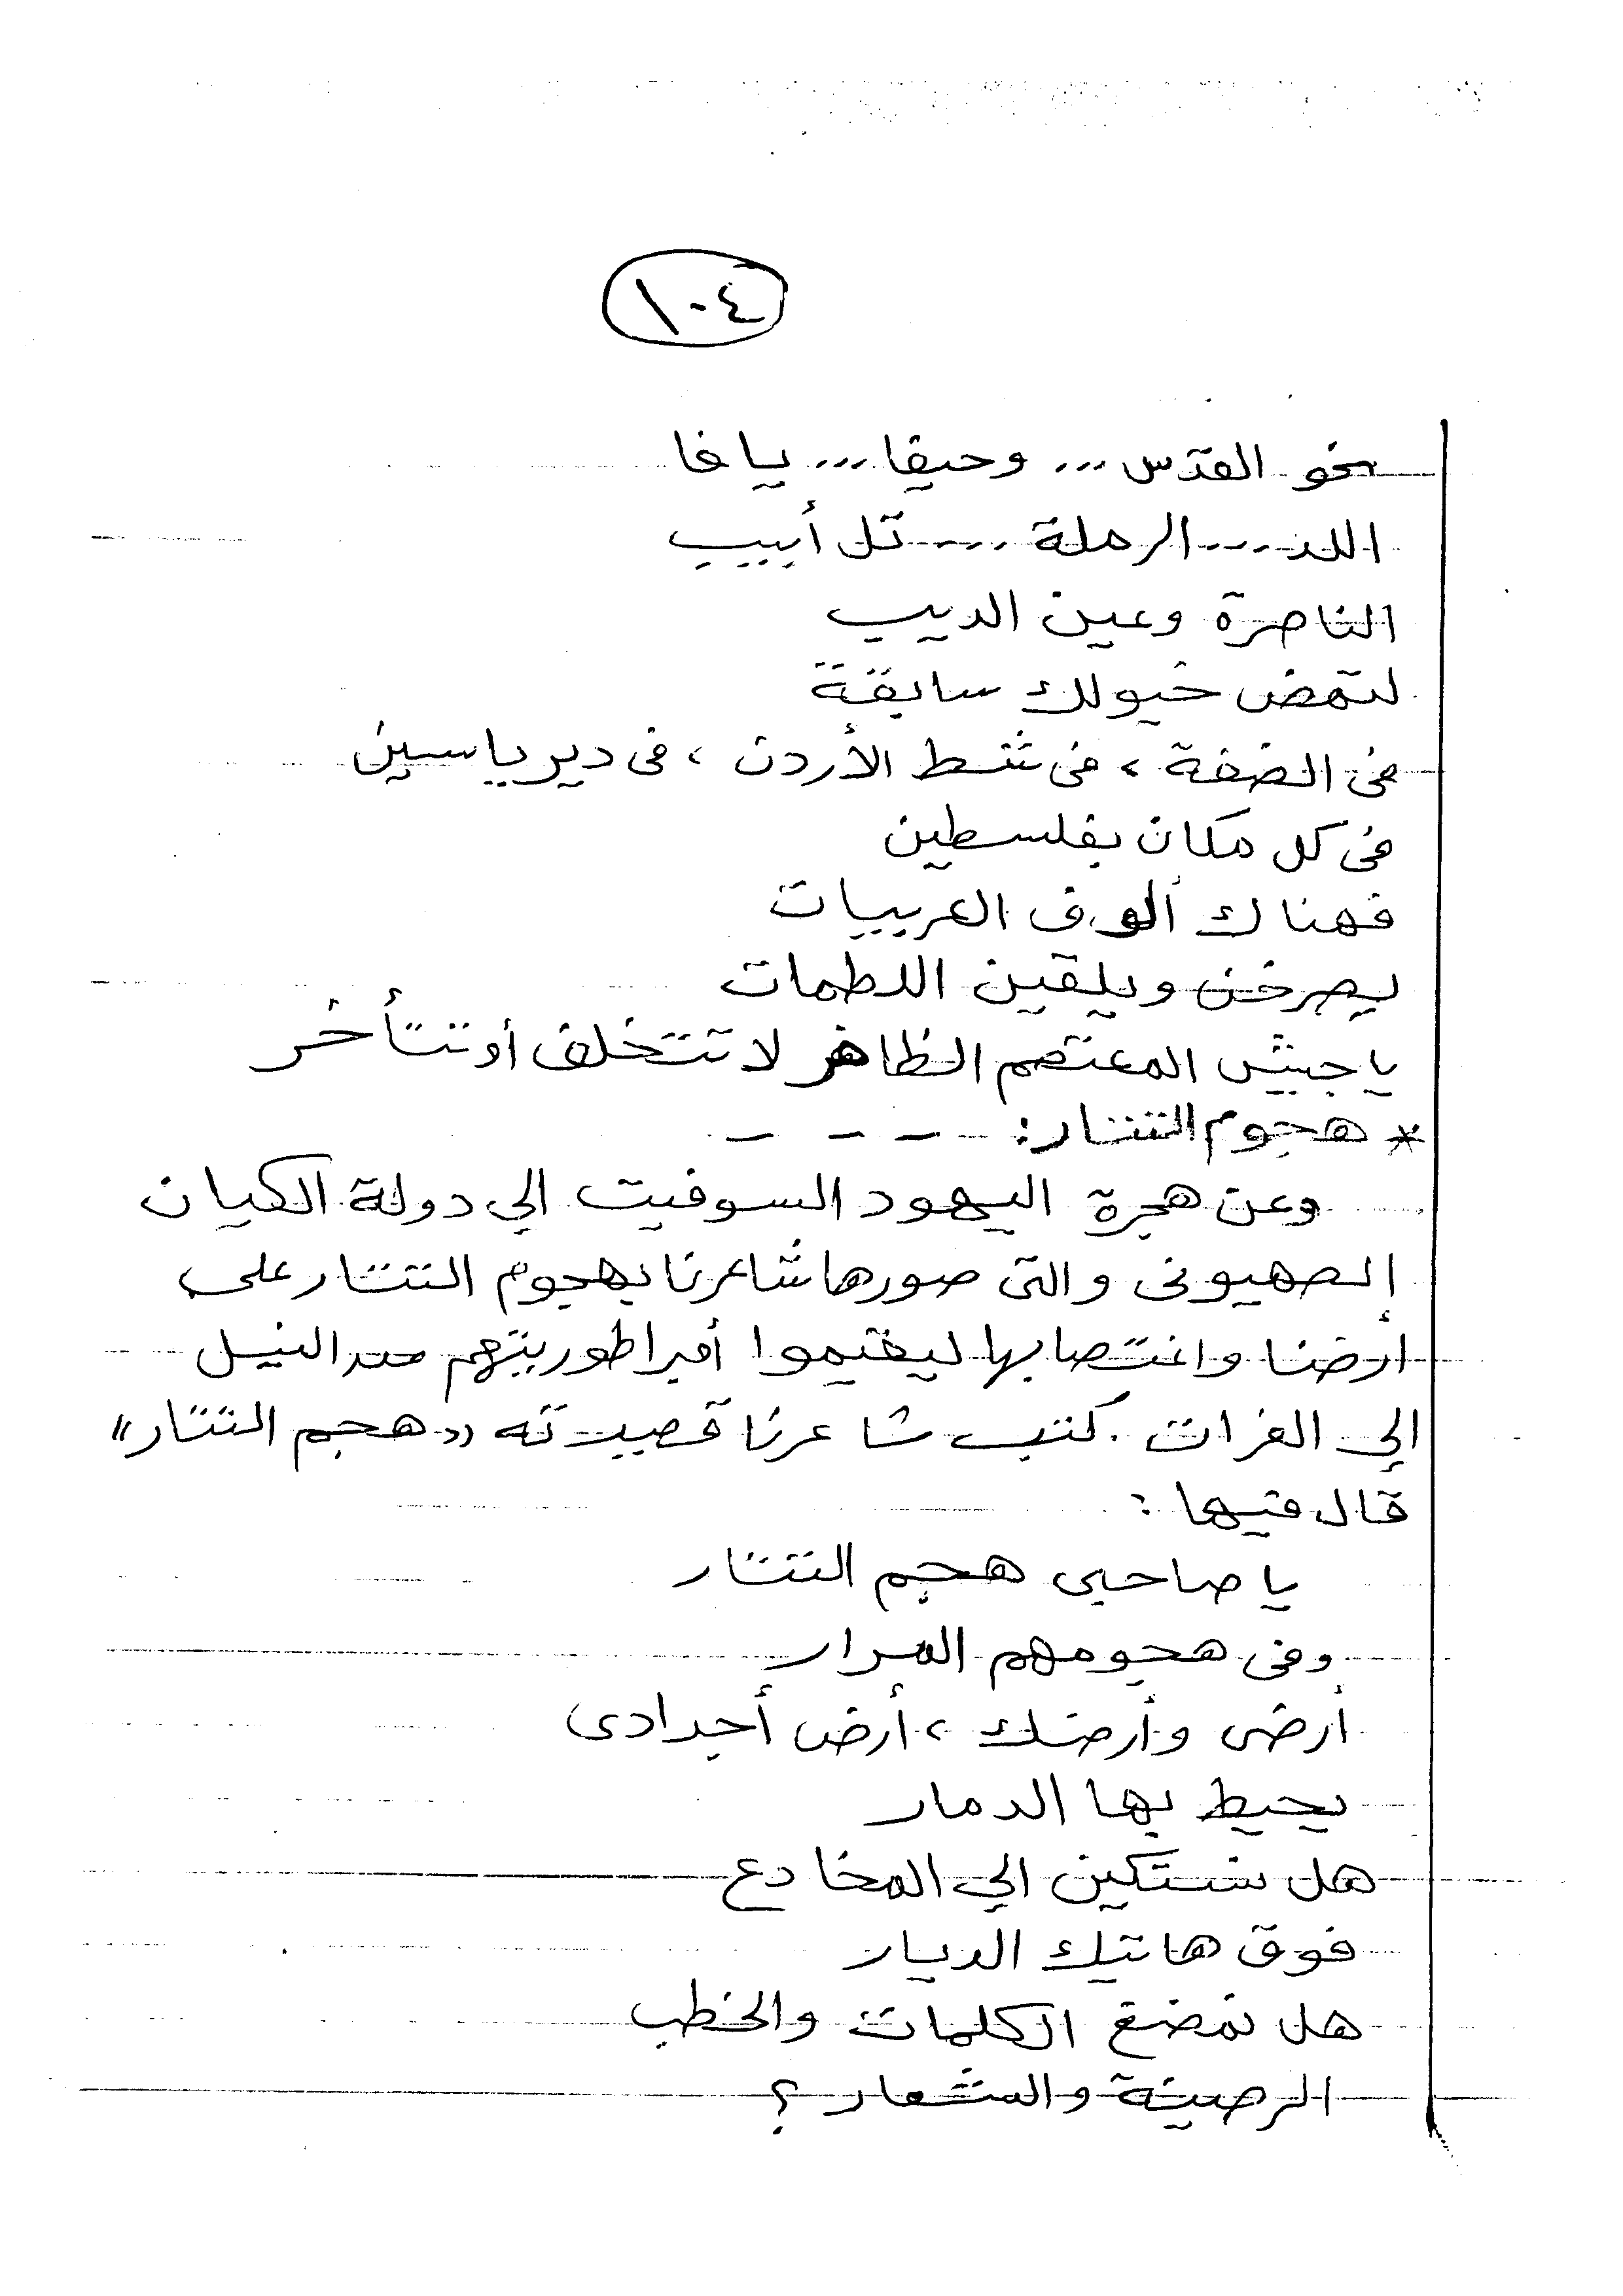 ١٠٤
نحو القدس ... وحيفا ... يافا
اللد .... الرملة .... تل أبيب
الناصرة وعين الديب
لتمض خيولك سابقة
فى الضفة ، فى شط الأردن ، فى دير ياسين
فى كل مكان بفلسطين
فهناك ألوف العربيات
يصرخن ويلقين اللطمات
يا جيش المعتصم الظافر لا تتخلف أو تتأخر
* هجوم التتار : - - - -
وعن هجرة اليهود السوفيت الي دولة الكيان
الصهيونى والتى صورها شاعرنا بهجوم التتار على
أرضنا واغتصابها ليقيموا أمبراطوريتهم من النيل
إلي الفرات . كتب شاعرنا قصيدته « هجم التتار »
قال فيها :
يا صاحبى هجم التتار
وفى هجومهم الدمار
أرضى وأرضك ، أرض أجدادى
يحيط بها الدمار
هل نستكين الي المخادع
فوق هاتيك الديار
هل نمضغ الكلمات والخطب
الرصينة والشعار ؟